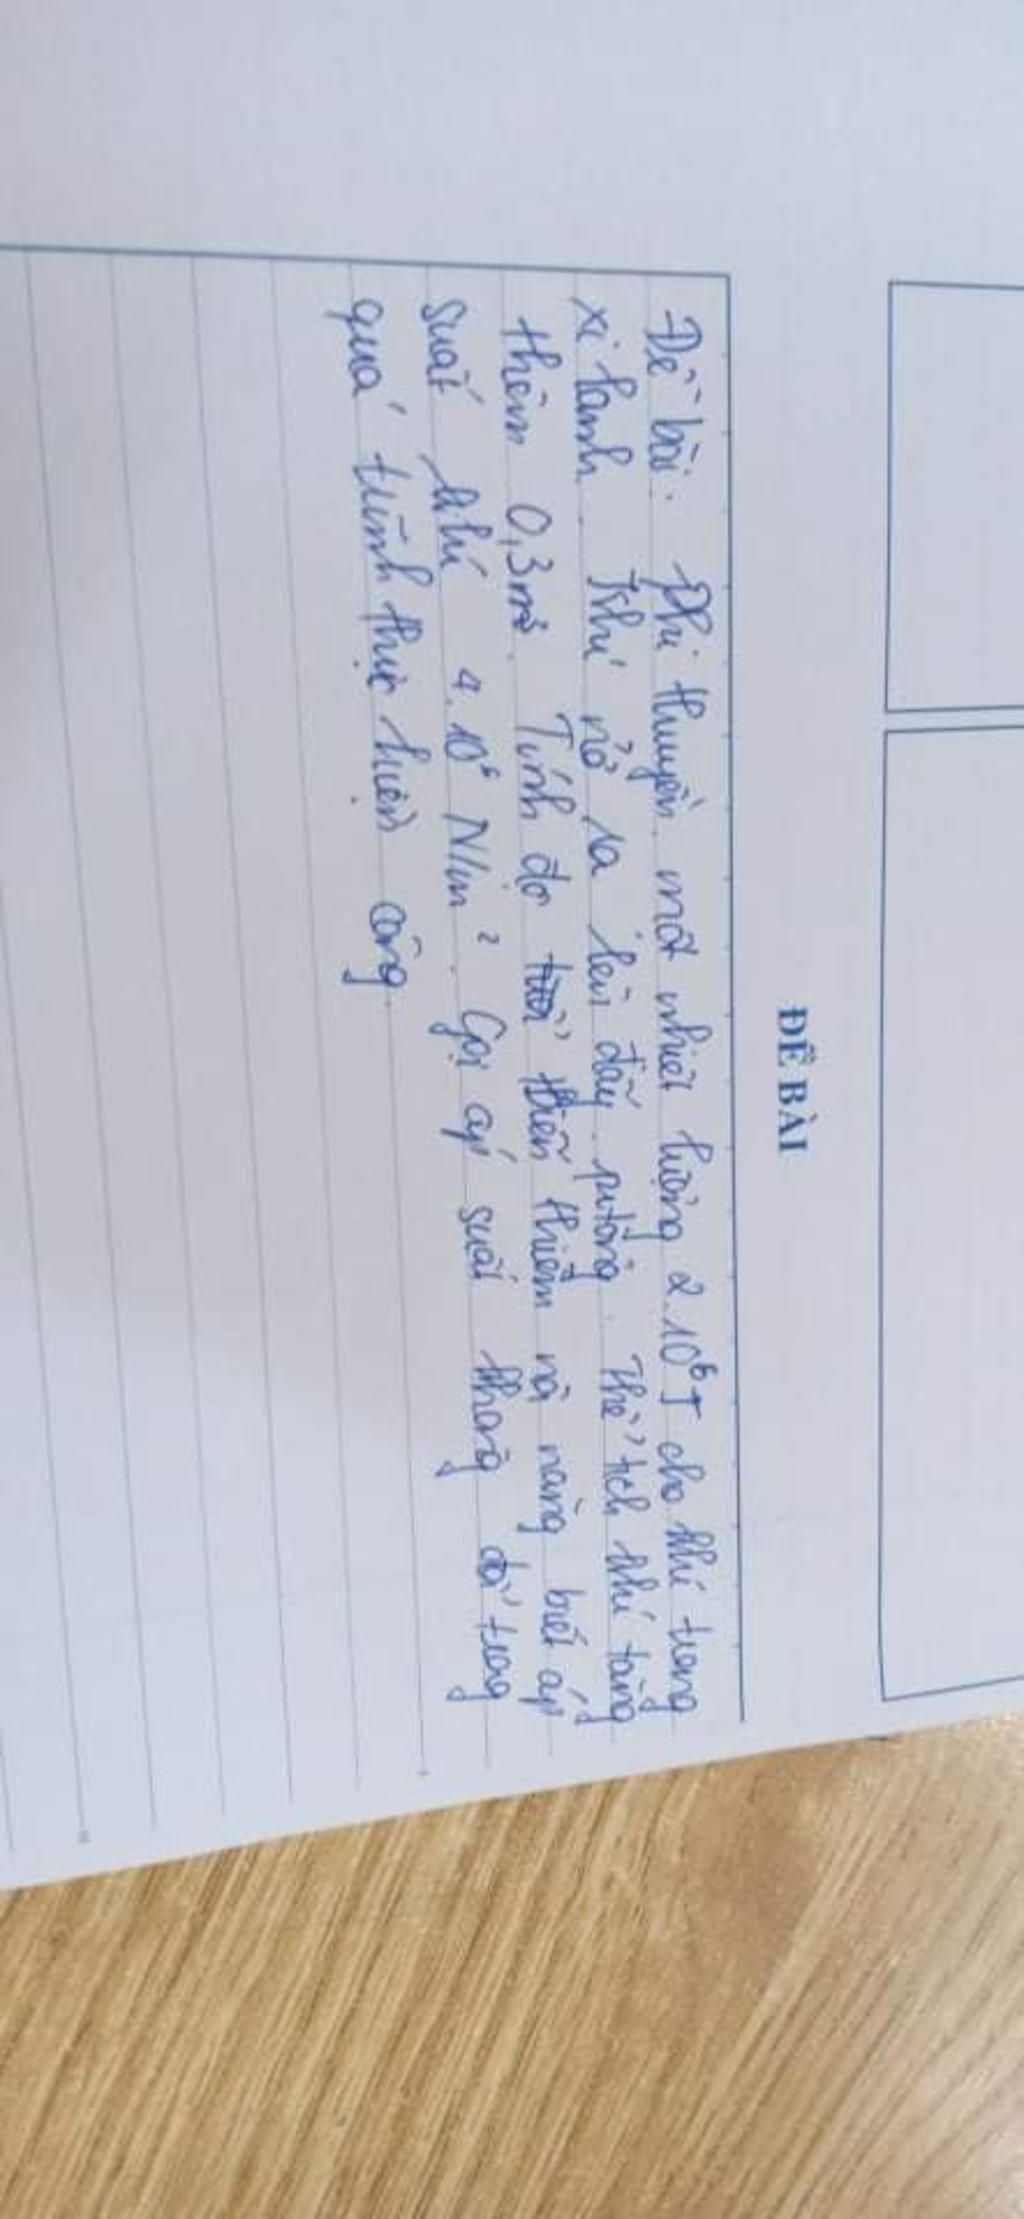 ĐỀ BÀI
Đề bài: Khi truyền một nhiệt lượng 2.10⁶ J cho khí trong
xi lanh. Khí nở ra lên đẩy pittông. Thể tích khí tăng
thêm 0,3m³. Tính độ biến thiên nội năng biết áp
suất khí 4.10⁶ N/m². Coi áp suất không đổi trong
quá trình thực hiện công